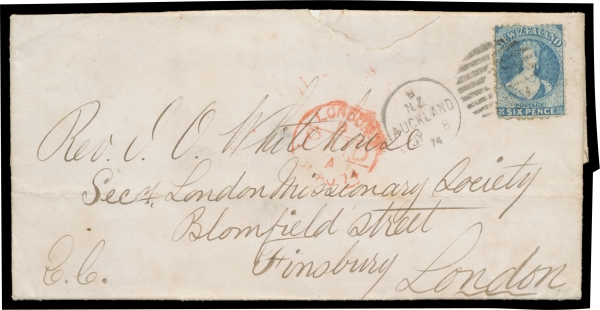 NEW ZEALAND
POSTAGE
SIX PENCE
N.Z
AUCKLAND
8
74
LONDON
A
74
Rev. J. O. Whitehouse
Secy. London Missionary Society
Blomfield street
Finsbury
E.C. London